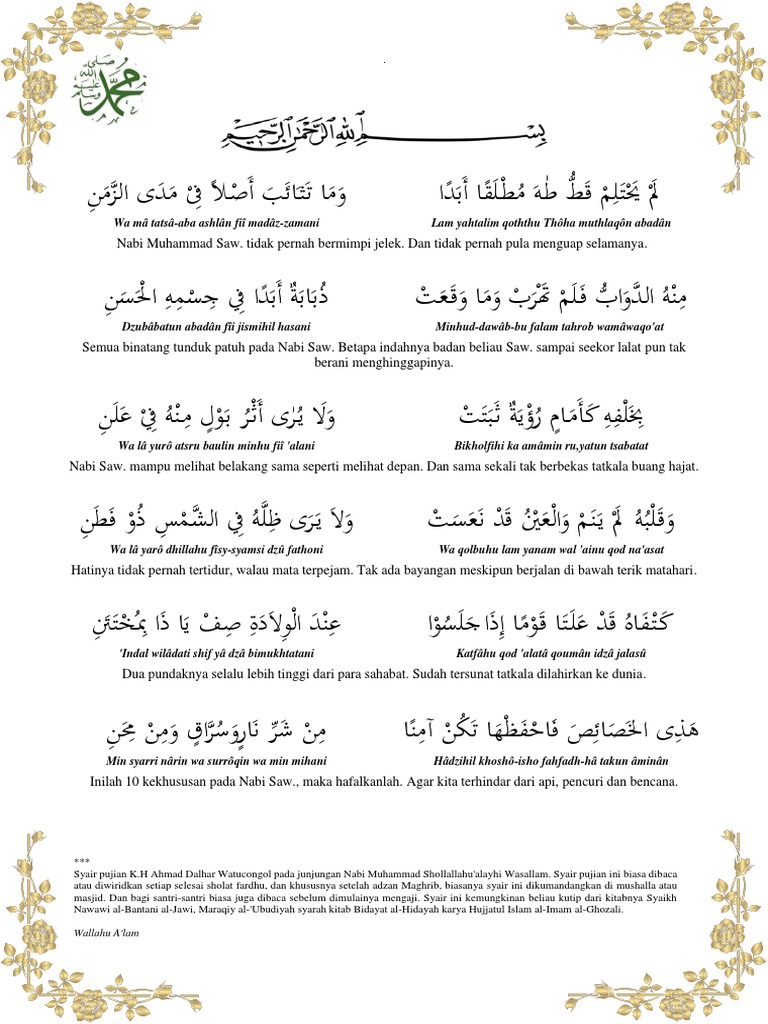 محمد صلى الله عليه وسلم
بسم الله الرحمن الرحيم
لَمْ يَحْتَلِمْ قَطُّ طٰهَ مُطْلَقًا أَبَدًا وَمَا تَثَائَبَ أَصْلاً فِيْ مَدَى الزَّمَنِ
Lam yahtalim qoththu Thôha muthlaqôn abadân Wa mâ tatsâ-aba ashlân fiî madâz-zamani
Nabi Muhammad Saw. tidak pernah bermimpi jelek. Dan tidak pernah pula menguap selamanya.
مِنْهُ الدَّوَابُّ فَلَمْ تَهْرَبْ وَمَا وَقَعَتْ ذُبَابَةٌ أَبَدًا فِي جِسْمِهِ الْحَسَنِ
Minhud-dawâb-bu falam tahrob wamâwaqo'at Dzubâbatun abadân fii jismihil hasani
Semua binatang tunduk patuh pada Nabi Saw. Betapa indahnya badan beliau Saw. sampai seekor lalat pun tak
berani menghinggapinya.
بِخَلْفِهِ كَأَمَامٍ رُؤْيَةٌ ثَبَتَتْ وَلَا يُرٰى أَثْرُ بَوْلٍ مِنْهُ فِيْ عَلَنِ
Bikholfihi ka amâmin ru,yatun tsabatat Wa lâ yurô atsru baulin minhu fiî 'alani
Nabi Saw. mampu melihat belakang sama seperti melihat depan. Dan sama sekali tak berbekas tatkala buang hajat.
وَقَلْبُهُ لَمْ يَنَمْ وَالْعَيْنُ قَدْ نَعَسَتْ وَلاَ يَرَى ظِلَّهُ فِي الشَّمْسِ ذُوْ فَطَنِ
Wa qolbuhu lam yanam wal 'ainu qod na'asat Wa lâ yarô dhillahu fîsy-syamsi dzû fathoni
Hatinya tidak pernah tertidur, walau mata terpejam. Tak ada bayangan meskipun berjalan di bawah terik matahari.
كَتْفَاهُ قَدْ عَلَتَا قَوْمًا إِذَا جَلَسُوْا عِنْدَ الْوِلاَدَةِ صِفْ يَا ذَا بِمُخْتَتَنِ
Katfâhu qod 'alatâ qoumân idzâ jalasû 'Indal wilâdati shif yâ dzâ bimukhtatani
Dua pundaknya selalu lebih tinggi dari para sahabat. Sudah tersunat tatkala dilahirkan ke dunia.
هَذِى الخَصَائِصَ فَاحْفَظْهَا تَكُنْ آمِنًا مِنْ شَرِّ نَارٍوَسُرَّاقٍ وَمِنْ مِحَنِ
Hâdzihil khoshô-isho fahfadh-hâ takun âminân Min syarri nârin wa surrôqin wa min mihani
Inilah 10 kekhususan pada Nabi Saw., maka hafalkanlah. Agar kita terhindar dari api, pencuri dan bencana.
***
Syair pujian K.H Ahmad Dalhar Watucongol pada junjungan Nabi Muhammad Shollallahu'alayhi Wasallam. Syair pujian ini biasa dibaca
atau diwiridkan setiap selesai sholat fardhu, dan khususnya setelah adzan Maghrib, biasanya syair ini dikumandangkan di mushalla atau
masjid. Dan bagi santri-santri biasa juga dibaca sebelum dimulainya mengaji. Syair ini kemungkinan beliau kutip dari kitabnya Syaikh
Nawawi al-Bantani al-Jawi, Maraqiy al-'Ubudiyah syarah kitab Bidayat al-Hidayah karya Hujjatul Islam al-Imam al-Ghozali.
Wallahu A'lam